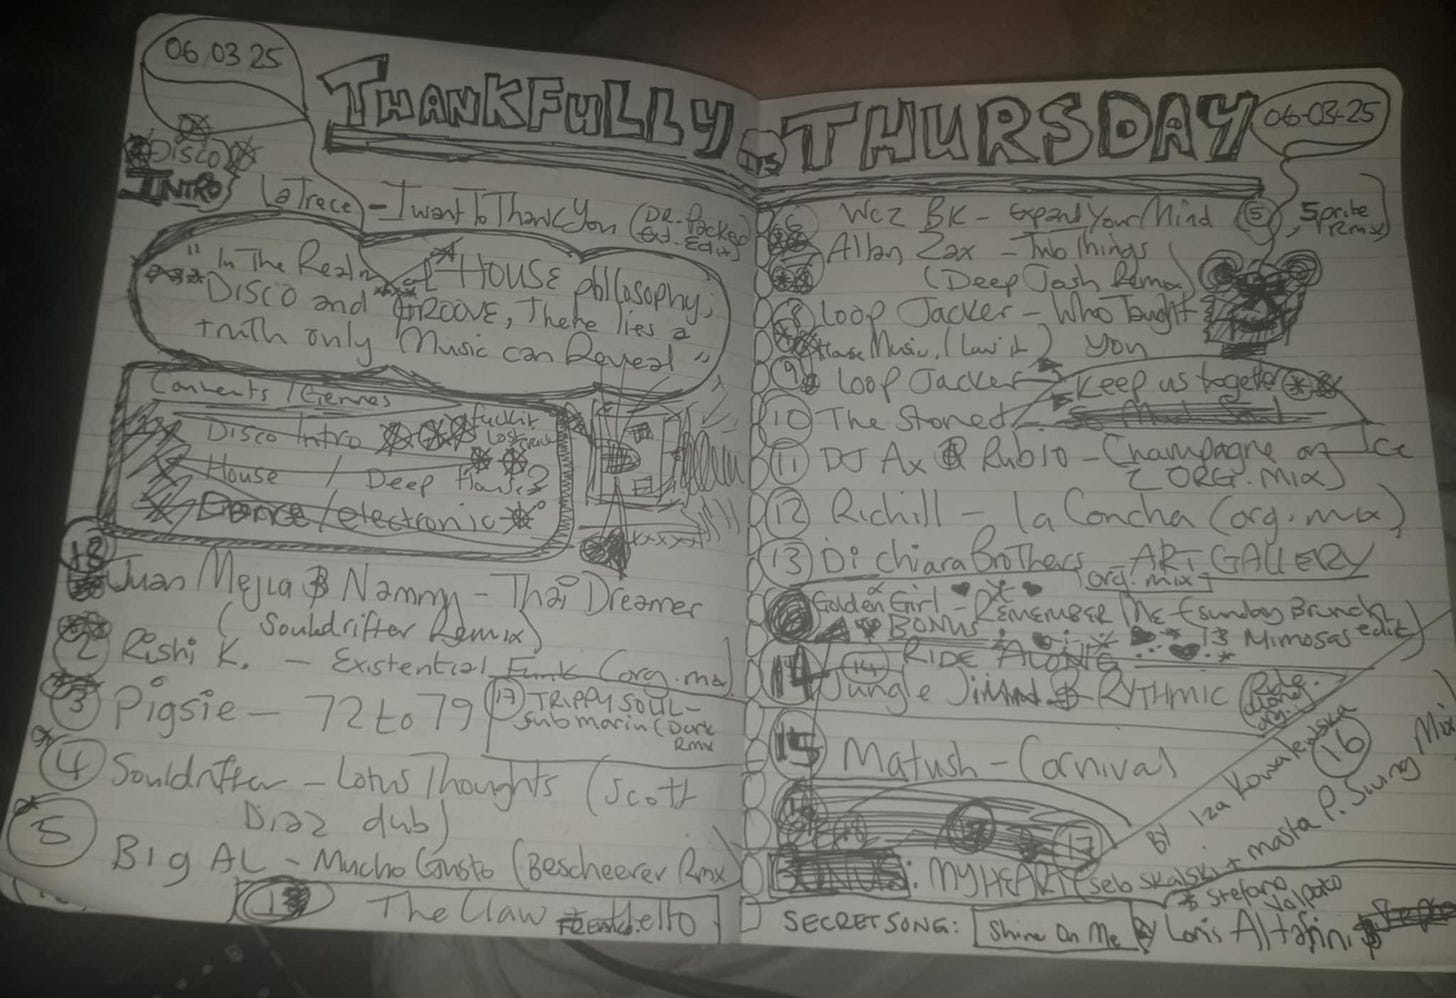 06.03.25
THANKFULLY
Disco
INTRO
LaTrace - I want To Thank You (DR. Packer
Ext. Edit)
"In The Realm
DISCO and
HOUSE philosophy,
GROOVE, There lies a
truth only Music can Reveal"
Contents / Genres
Disco Intro
House / Deep House?
Dance/electronic
Juan Mejia & Nammy - Thai Dreamer
(Souldrifter Remix)
2 Rishi K. - Existential Funk (org. mx)
3 Pigsie - 72 to 79
17 TRIPPY SOUL -
submarin (Dark
Rmx
4 Souldrifter - Lotus Thoughts (Scott
Diaz dub)
5
Big AL - Mucho Gusto (Bescheerer Rmx
The Claw
ITS
THURSDAY
06-03-25
6 Wez BK - Expand Your Mind
5prite
rmx)
Allan Zax - Two Things
(Deep Josh Remix)
8 Loop Jacker - Who Taught
House Music. (Luv it) you
9 Loop Jacker - Keep us together
10 The Stoned
11 DJ Ax & Rubio - Champagne on Ice
ORG. MIX)
12 Richill - la Concha (org. mix)
13 Di Chiara Brothers - ART GALLERY
(org. mix)
Golden Girl - REMEMBER Me (Sunday Brunch
BONUS
13 Mimosas edit)
RIDE ALONE
14 (14)
Jungle & RYTHMIC
15 Matush - Carnival
16
17
BONUS: MY HEART (seb skalski + masta P. Swing Mix)
By Iza Kowalewska
& Stefano
Valpato
SECRET SONG: Shine On Me By Loris Altafini